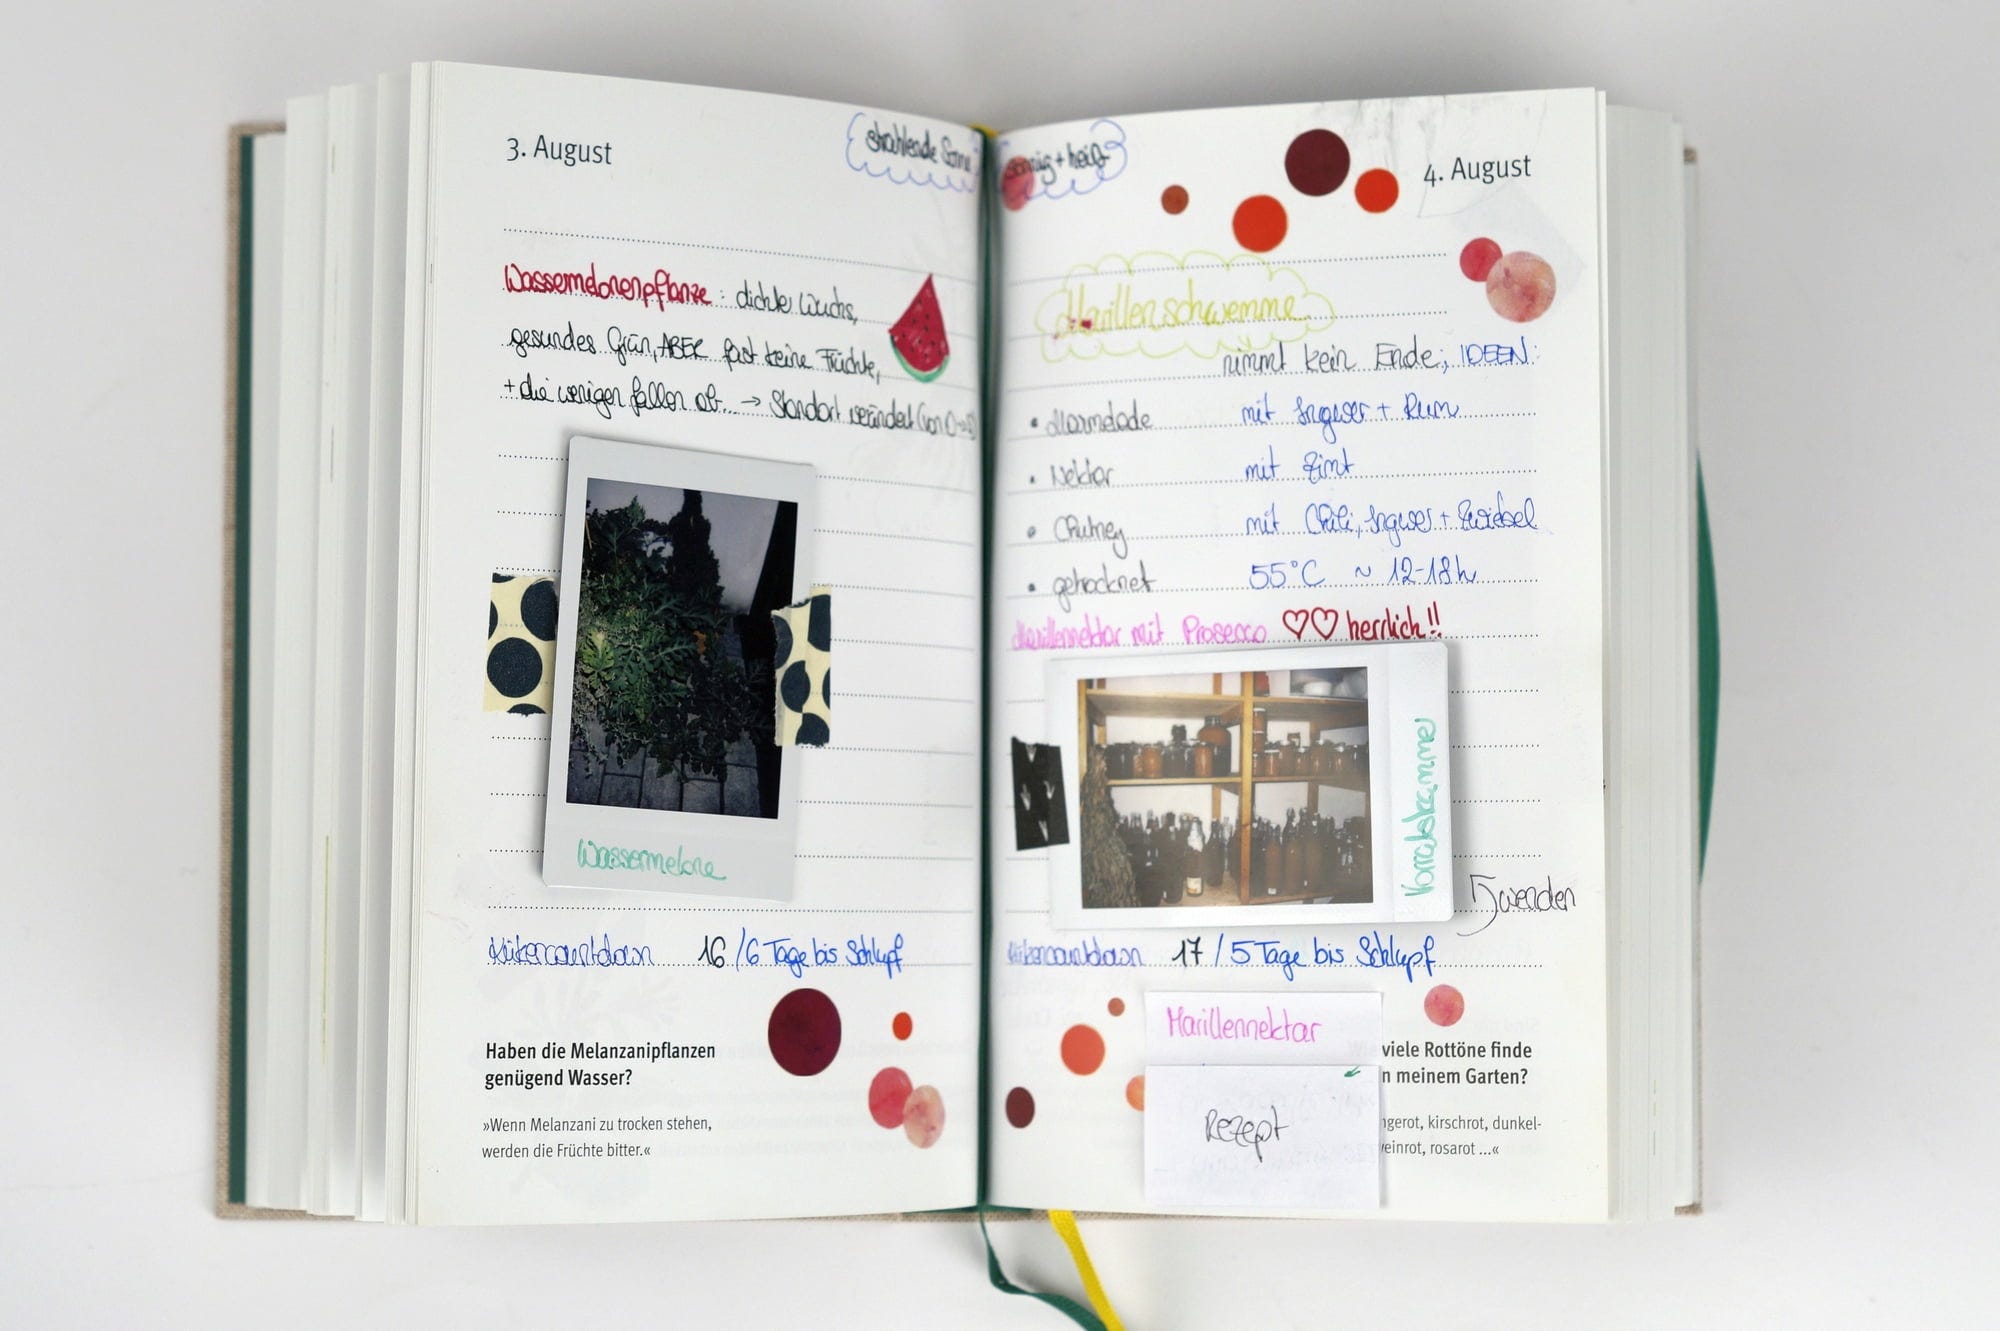 3. August
strahlende Sonne
Wassermelonenpflanze: dichter Wuchs,
gesundes Grün, ABER fast keine Früchte,
+ die wenigen fallen ab... → Standort verändert (von
Wassermelone
Kükencountdown 16 / 6 Tage bis Schlupf
Haben die Melanzanipflanzen
genügend Wasser?
»Wenn Melanzani zu trocken stehen,
werden die Früchte bitter.«
sonnig + heiß
4. August
Marillenschwemme
nimmt kein Ende; IDEEN:
• Marmelade mit Ingwer + Rum
• Nektar mit Zimt
• Chutney mit Chili, Ingwer + Zwiebel
• getrocknet 55°C ~ 12-18h
Marillennektar mit Prosecco ♡♡ herrlich!!
Vorratskammer
wenden
Kükencountdown 17 / 5 Tage bis Schlupf
Marillennektar
Rezept
Wie viele Rottöne finde
n meinem Garten?
ngerot, kirschrot, dunkel-
weinrot, rosarot ...«